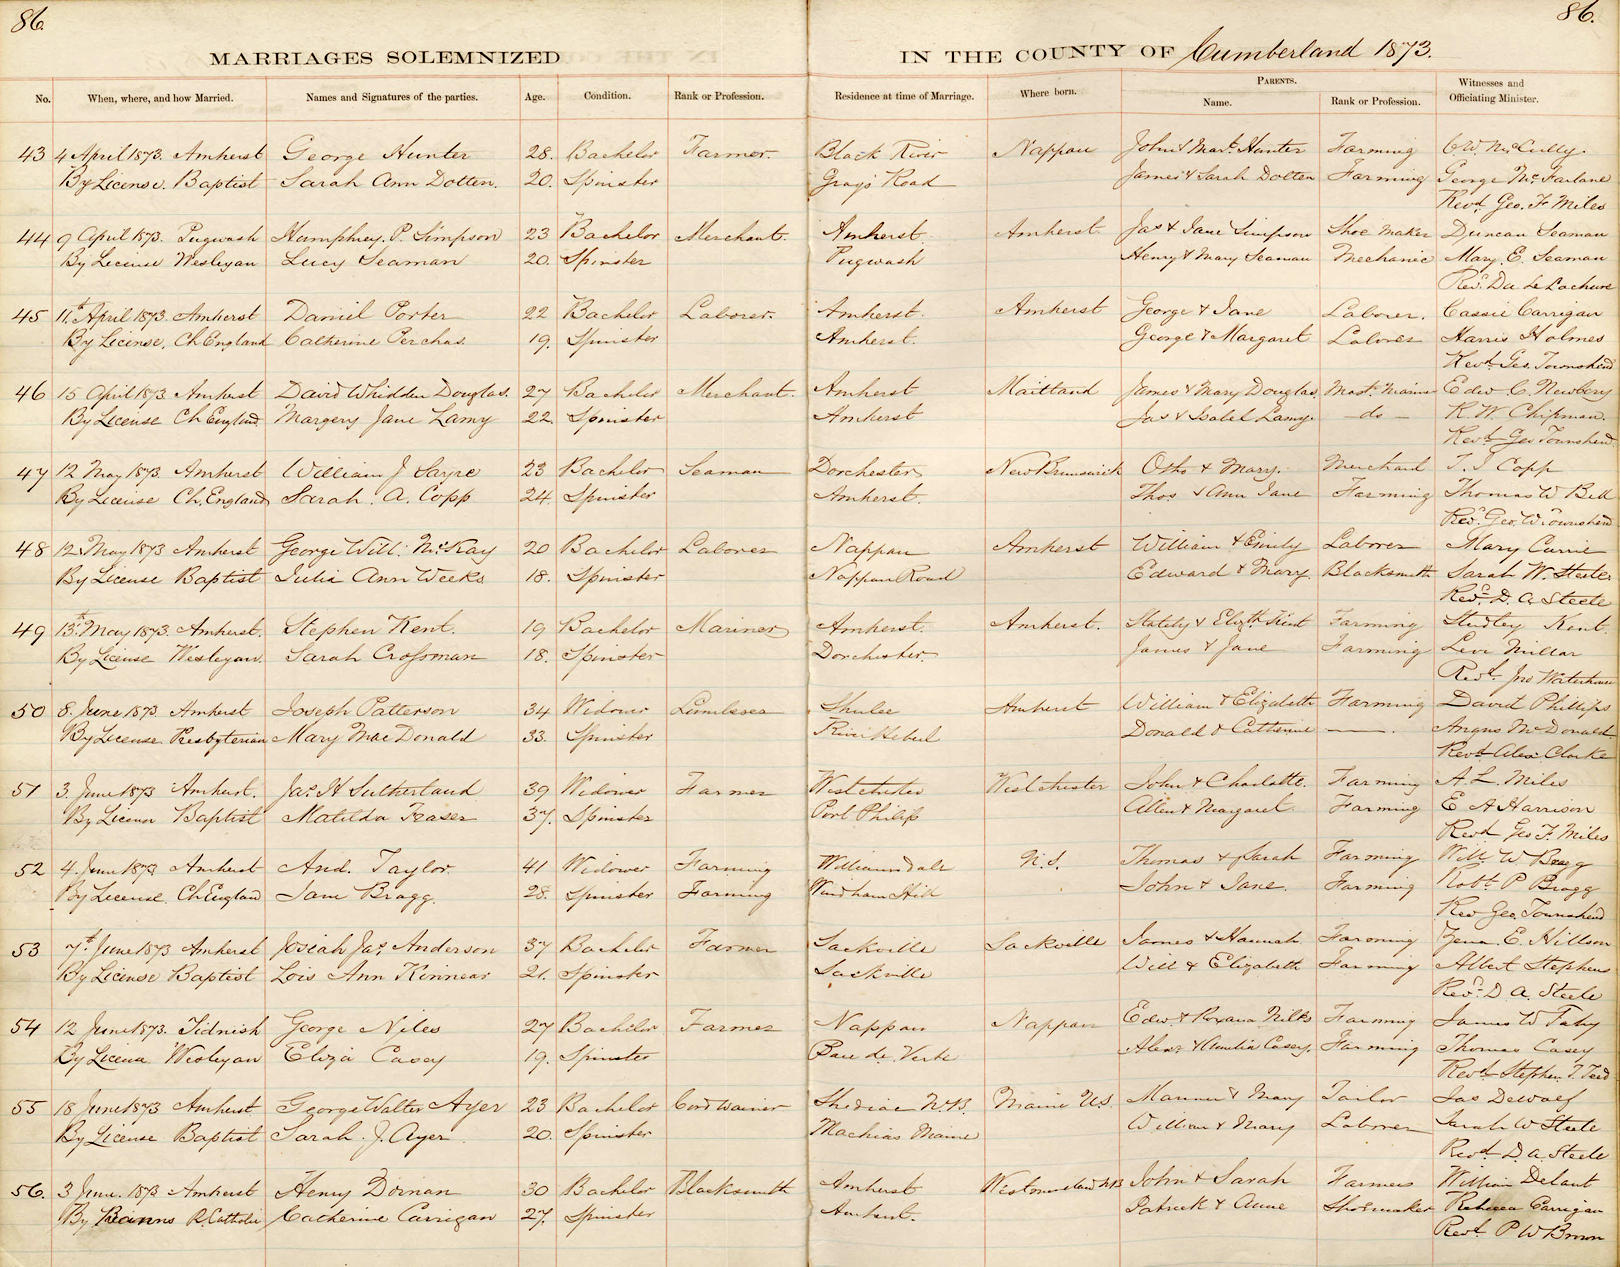 86.
86.
MARRIAGES SOLEMNIZED IN THE COUNTY OF Cumberland 1873.
No. When, where, and how Married. Names and Signatures of the parties. Age. Condition. Rank or Profession. Residence at time of Marriage. Where born. PARENTS. Name. Rank or Profession. Witnesses and Officiating Minister.
43 4 April 1873. Amherst George Hunter 28. Bachelor Farmer. Black River Nappan John & Mart. Hunter Farming C. W. McCully.
By License. Baptist Sarah Ann Dotten. 20. Spinster Grays Road James & Sarah Dotten Farming George McFarlane
Revd. Geo. F. Miles
44 9 April 1873. Pugwash Humphrey. P. Simpson 23 Bachelor Merchant. Amherst. Amherst Jas & Jane Simpson Shoe Maker Duncan Seaman
By License Wesleyan Lucy Seaman 20. Spinster Pugwash Henry & Mary Seaman Mechanic Mary. E. Seaman
45 11th April 1873. Amherst Daniel Porter 22 Bachelor Laborer. Amherst. Amherst George & Jane Laborer. Cassie Carrigan
By License, Ch England Catherine Perchas. 19. Spinster Amherst. George & Margaret Laborer Harris Holmes
Revd. Geo. Townshend
46 15 April 1873. Amherst David Whidden Douglas. 27 Bachelor Merchant. Amherst Maitland James & Mary Douglas Edw. C. Newbery
By License Ch England. Margery Jane Lamy 22. Spinster Amherst Jas & Isabel Lamy. — do — R. W. Chipman.
Revd. Geo Townshend.
47 12 May 1873. Amherst William J. Sayre 23 Bachelor Seaman Dorchester New Brunswick Otho & Mary. Merchant T. S Copp
By License Ch. England Sarah. A. Copp 24. Spinster Amherst. Thos & Ann Jane Farming Thomas W Bell
Revd. Geo. W. Townshend
48 12. May 1873 Amherst George Will. McKay 20 Bachelor Laborer Nappan Amherst William & Emily Laborer Mary Currie
By License Baptist Julia Ann Weeks 18. Spinster Nappan Road Edward & Mary. Blacksmith Sarah W. Steele
Revd. D. A. Steele
49 13th. May 1873. Amherst. Stephen Kent. 19 Bachelor Mariner Amherst. Amherst. & Elizth Kent Farming Studley Kent.
By License Wesleyan. Sarah Crossman 18. Spinster Dorchester. James & Jane Farming Levi Millar
Revd. Jno Waterhouse
50 8. June 1873 Amherst Joseph Patterson 34 Widower Lumberer Shulee Amherst William & Elizabeth Farming David Phillips
By License. Presbyterian Mary MacDonald 33. Spinster River Hebert Donald & Catherine — Angus McDonald
Revd. Alex Clarke
51 3. June 1873 Amherst. Jas. H Sutherland 39 Widower Farmer Westchester Westchester John & Charlotte. Farming A. L. Miles
By License Baptist Matilda Fraser 37. Spinster Port Philip Allen & Margaret Farming E A Harrison
Revd Geo F. Miles
52 4. June 1873 Amherst And. Taylor. 41 Widower Farming Williamsdale N.S. Thomas & Sarah Farming Will W Bragg
By License. Ch England Jane Bragg. 28. Spinster Farming Windham Hill John & Jane. Farming Robt. P Bragg
Rev Geo. Townshend
53 7th June 1873 Amherst Josiah Jas. Anderson 37 Bachelor Farmer Sackville Sackville James & Hannah Farming E. Hillson
By License Baptist Lois Ann Kinnear 21. Spinster Sackville Will & Elizabeth Farming Albert Stephens
Revd. D A. Steele
54 12 June 1873. Tidnish George Niles 27 Bachelor Farmer Nappan Nappan Edw. & Roxana Farming James W Taby
By License Wesleyan Eliza Casey 19. Spinster Baie de Verte Alexr & Casey. Farming Thomas Casey
Revd. Stephen T. Teed
55 18 June 1873 Amherst George Walter Ayer 23 Bachelor Cordwainer Shediac N.B. Maine U.S. & Mary Tailor Jas Dewolf
By License Baptist Sarah. J. Ayer. 20. Spinster Machias Maine William & Mary Laborer Sarah W Steele
Revd. D. A. Steele
56. 3 June. 1873 Amherst Henry Dornan 30 Bachelor Blacksmith Amherst Westmorland NB John & Sarah Farmers William
By Banns R. Catholic Catherine Carrigan 27. Spinster Amherst. Patrick & Anne Shoemaker Rebecca Carrigan
Revd. P W Brown